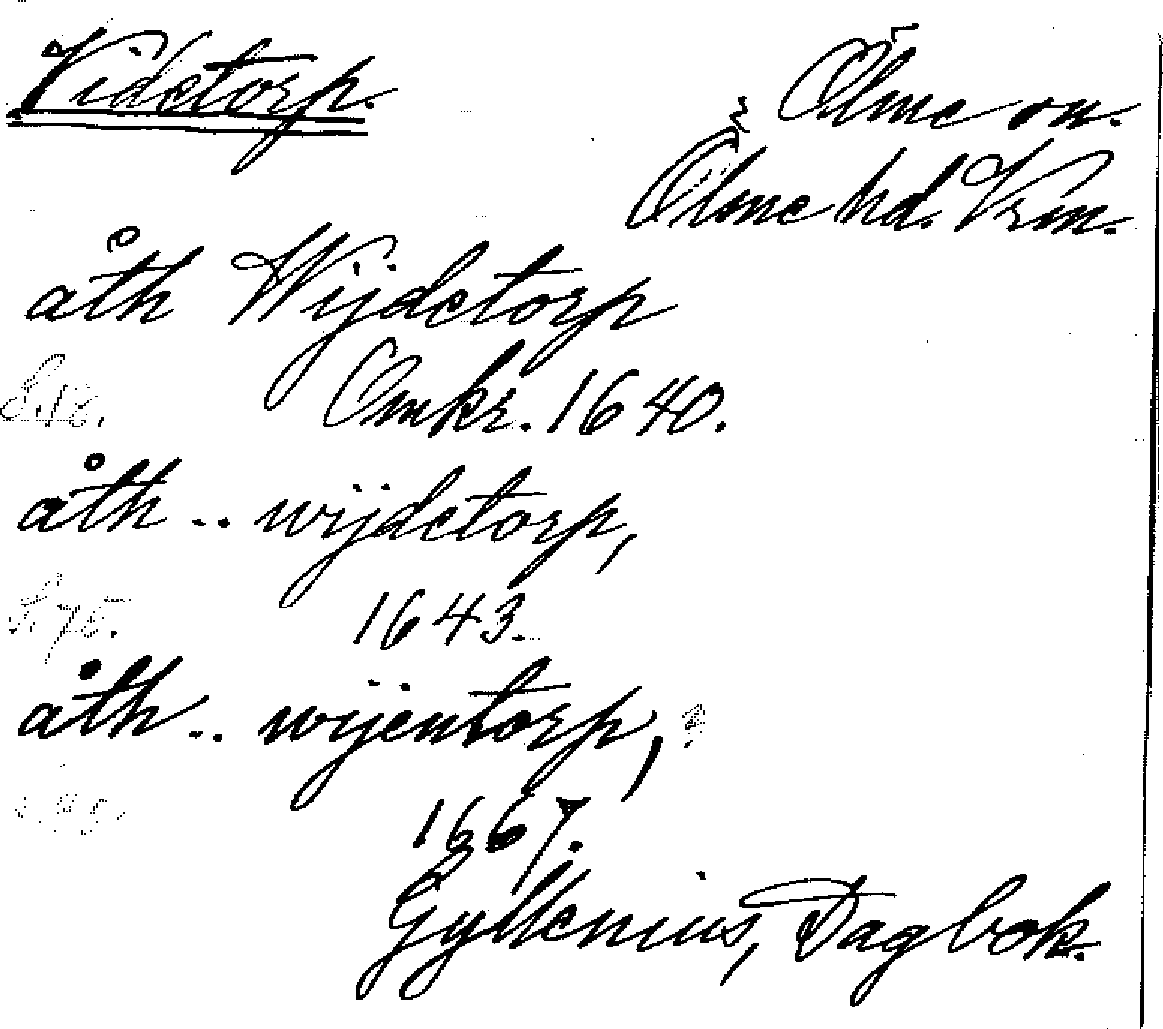 Videtorp.
Ölme sn.
Ölme hd. Vrm.
åth Wijdetorp
S. 12. Omkr. 1640.
åth .. wijdetorp,
S. 75. 1643.
åth .. wijentorp,
1667.
Gyllenius, Dagbok.